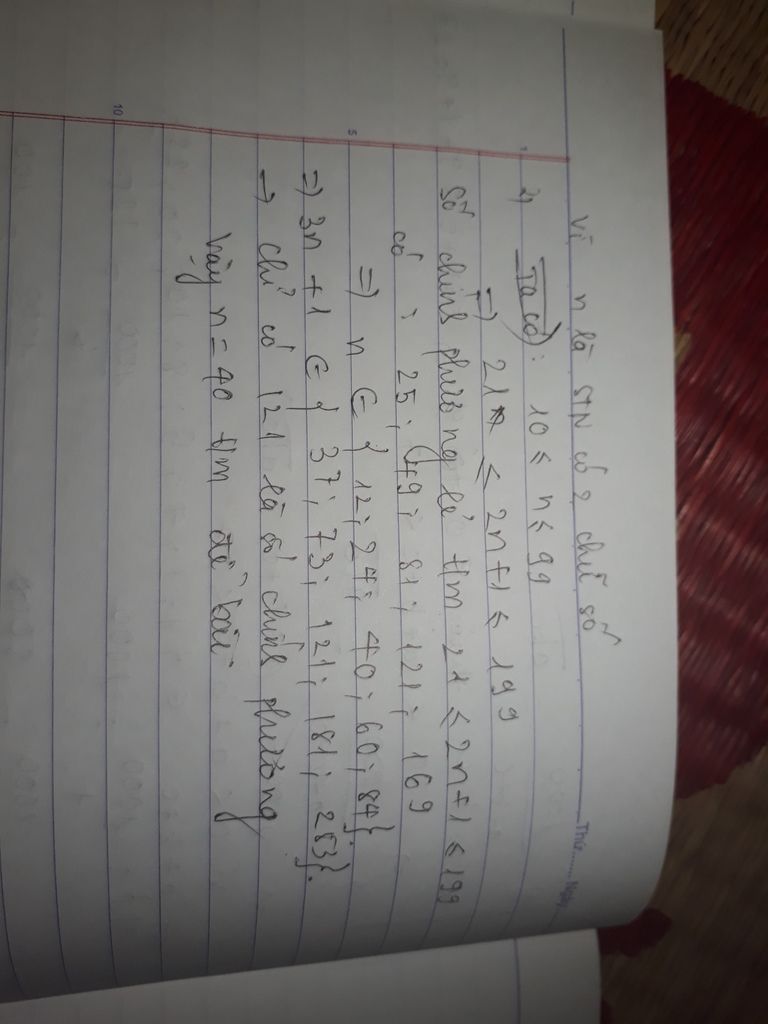 Thứ...... Ngày......
Vì n là STN có 2 chữ số
2) Ta có: 10 ≤ n ≤ 99
=) 21 ≤ 2n+1 ≤ 199
số chính phương lẻ t/m 21 ≤ 2n+1 ≤ 199
có : 25; 49; 81; 121; 169
=) n ∈ { 12; 24; 40; 60; 84};
=) 3n +1 ∈ { 37; 73; 121; 181; 253}.
→ chỉ có 121 là số chính phương
Vậy n = 40 t/m đề bài
1
5
10